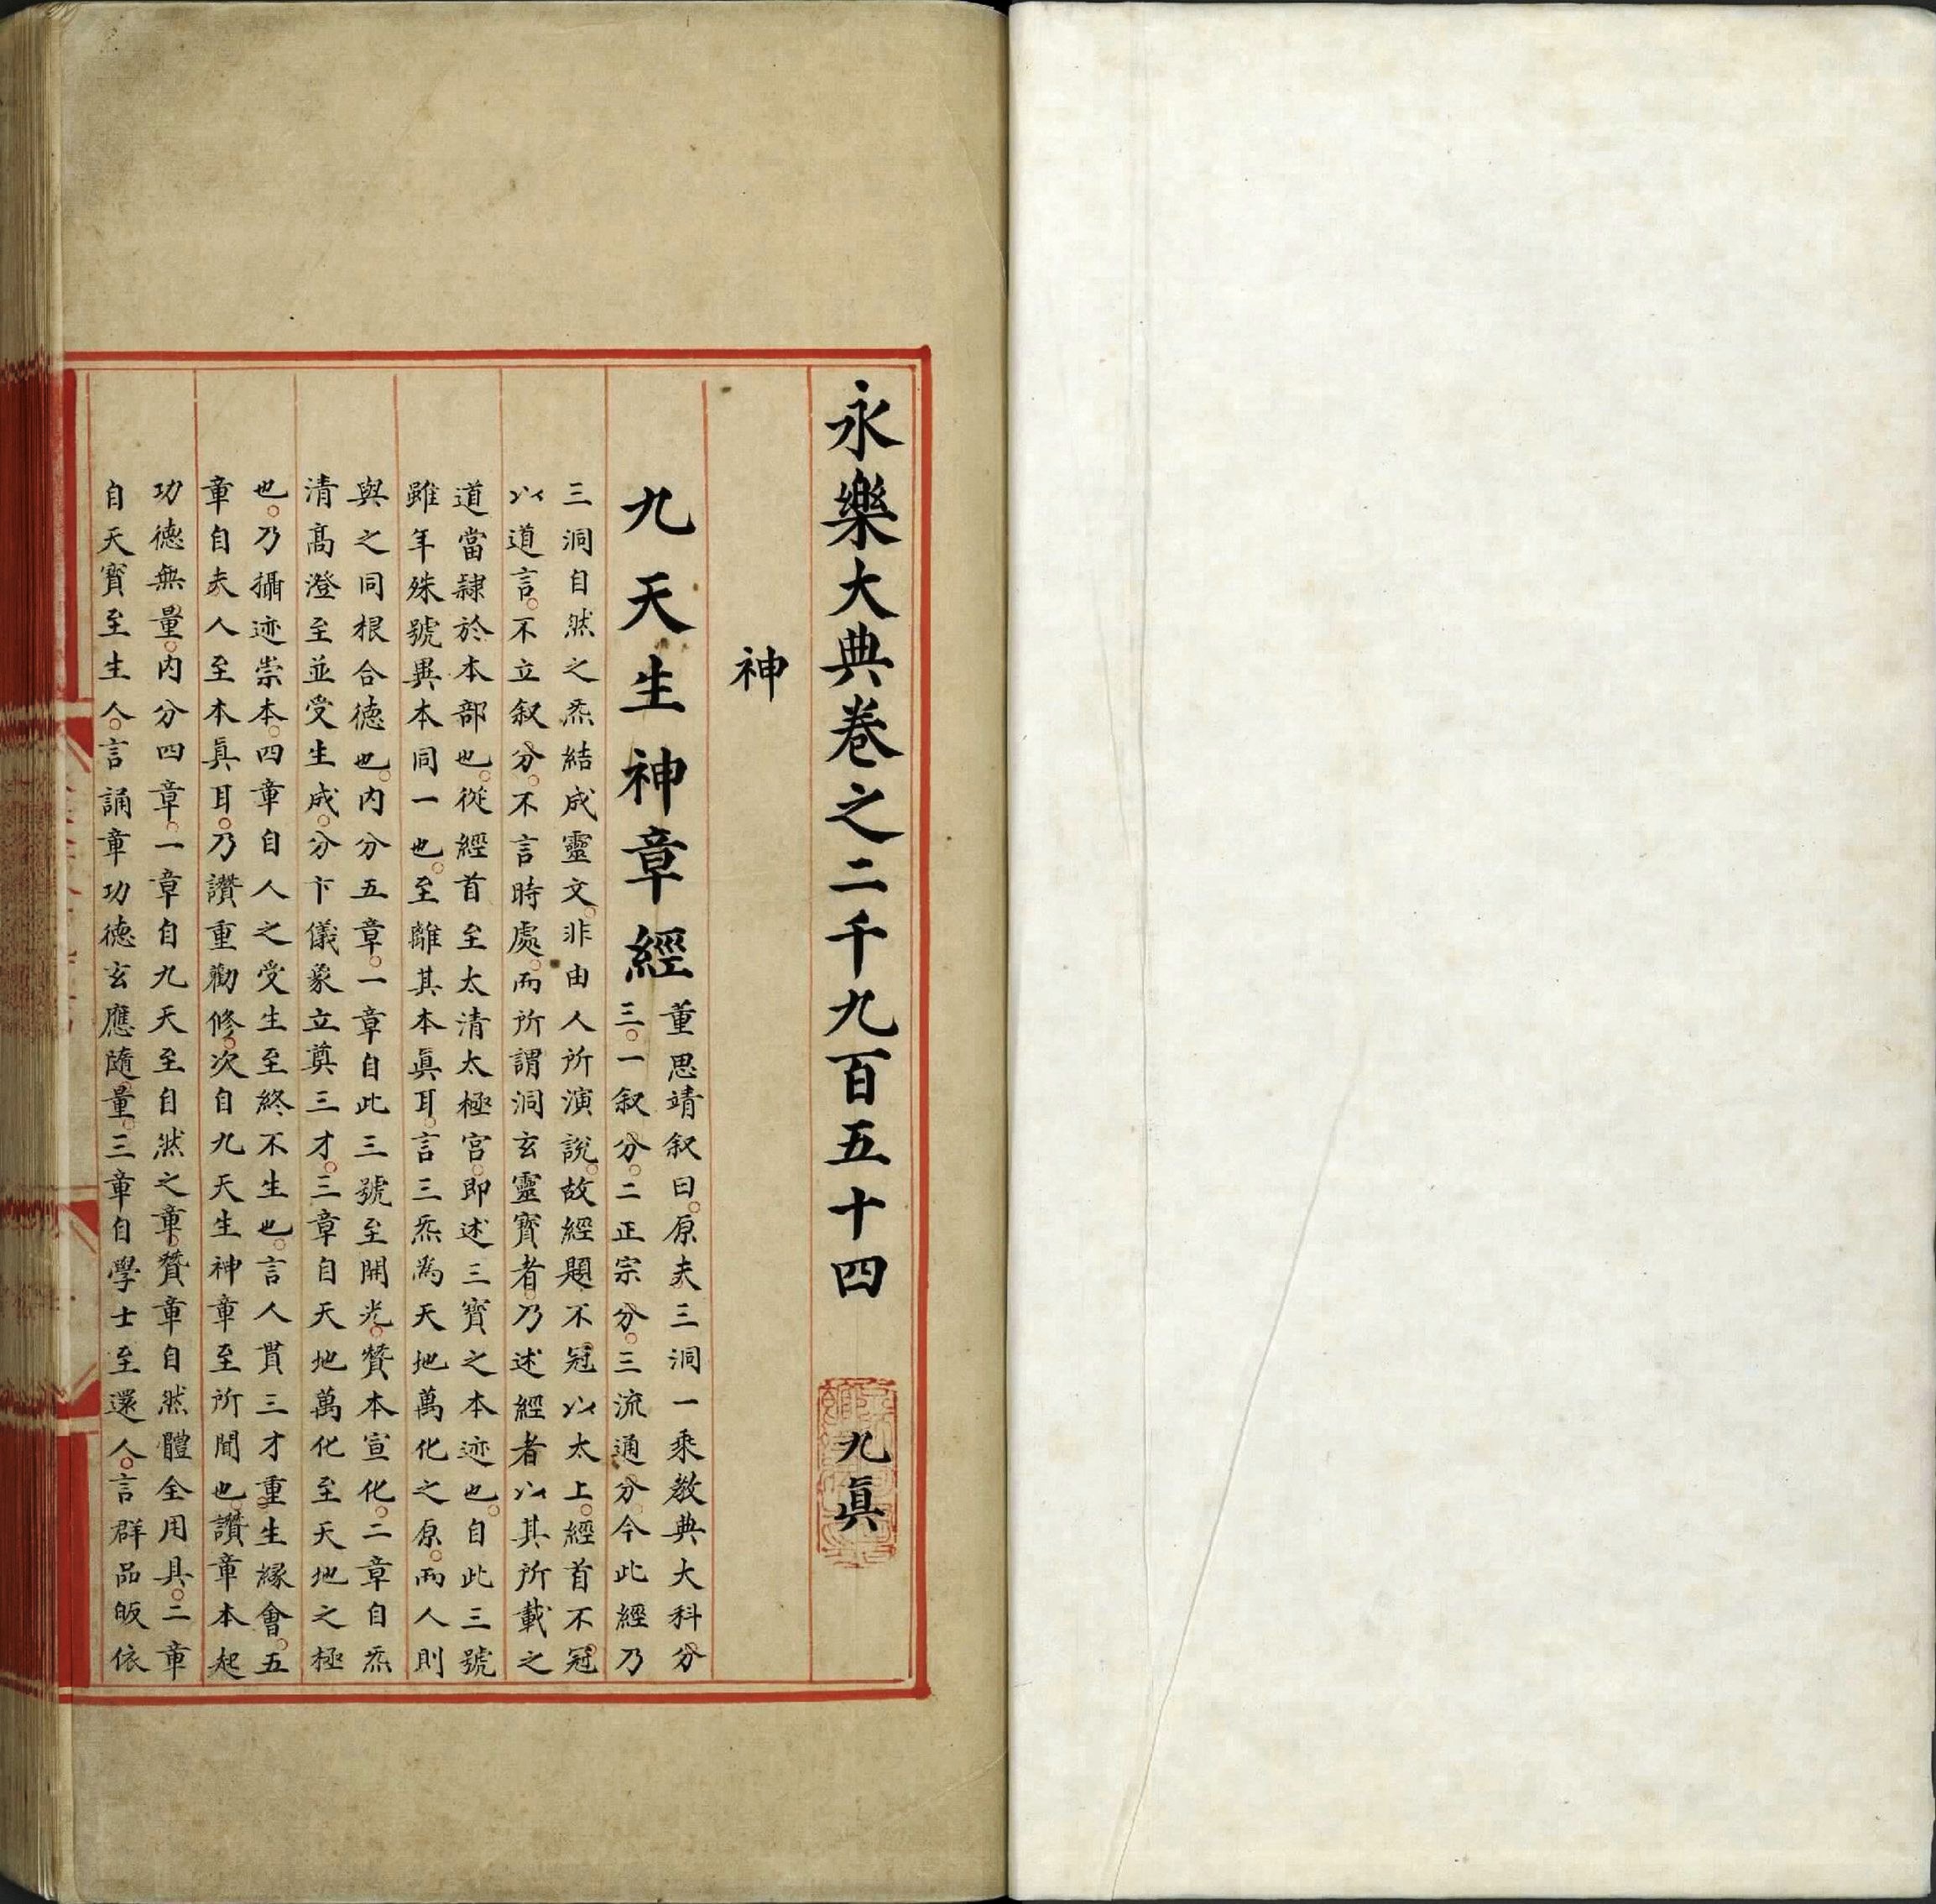 永樂大典卷之二千九百五十四 九眞
神
九天生神章經
董思靖叙曰。原夫三洞一乘教典大科分
三。一叙分。二正宗分。三流通分今此經乃
三洞自然之炁結成靈文。非由人所演說。故經題不冠以太上。經首不冠
以道言。不立叙分。不言時處。而所謂洞玄靈寶者。乃述經者以其所載之
道當隷於本部也。從經首至太清太極宮。即述三寶之本迹也。自此三號
雖年殊號異本同一也。至離其本眞耳。言三炁爲天地萬化之原。而人則
與之同根合德也。内分五章。一章自此三號至開光。贊本宣化。二章自炁
清高澄至並受生成。分卞儀象立奠三才。三章自天地萬化至天地之極
也。乃攝迹崇本。四章自人之受生至終不生也。言人貫三才重生緣會。五
章自夫人至本眞耳。乃讚重勸修。次自九天生神章至所聞也。讚章本起
功德無量。内分四章。一章自九天至自然之章。贊章自然體全用具。二章
自天寳至生人。言誦章功德玄應隨量。三章自學士至還人。言群品皈依